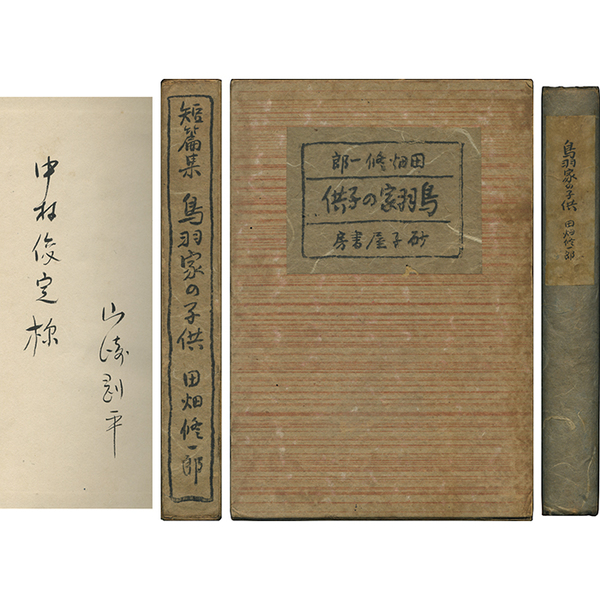 中村俊定様
山崎剛平
短篇集 鳥羽家の子供 田畑修一郎
田畑修一郎
鳥羽家の子供
砂子屋書房
鳥羽家の子供 田畑修一郎